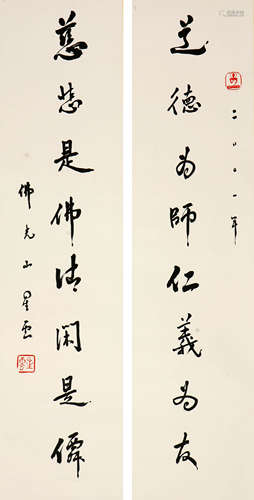 二〇〇一年
道德為師仁義為友
慈悲是佛清閑是僊
佛光山星雲